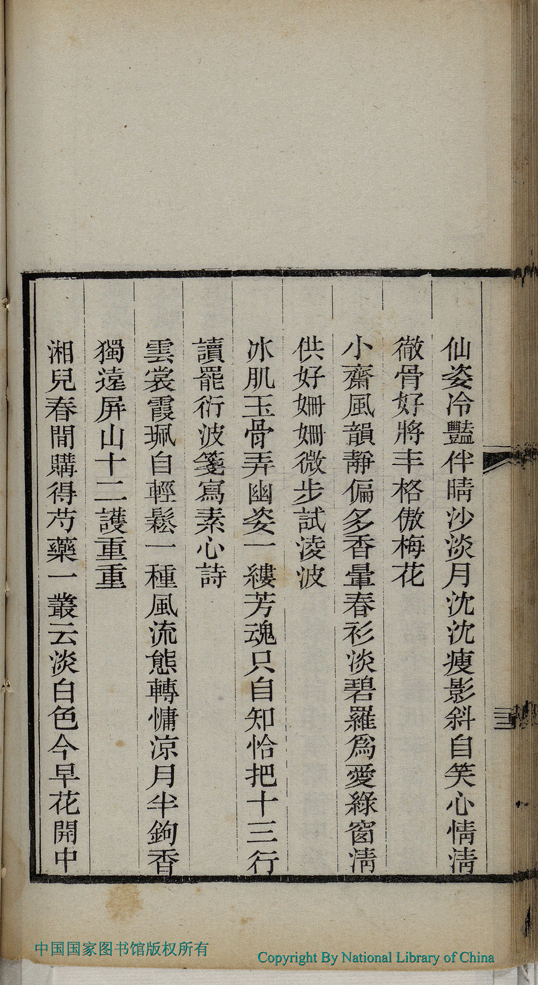 仙姿冷豔伴晴沙淡月沈沈瘦影斜自笑心情淸
徹骨好將丰格傲梅花
小齋風韻靜偏多香暈春衫淡碧羅爲愛綠窗淸
供好姍姍微步試淩波
冰肌玉骨弄幽姿一縷芳魂只自知恰把十三行
讀罷衍波箋寫素心詩
雲裳霞珮自輕鬆一種風流態轉慵涼月半鉤香
獨遶屏山十二護重重
湘兒春間購得芍藥一叢云淡白色今早花開中
中国国家图书馆版权所有
Copyright By National Library of China